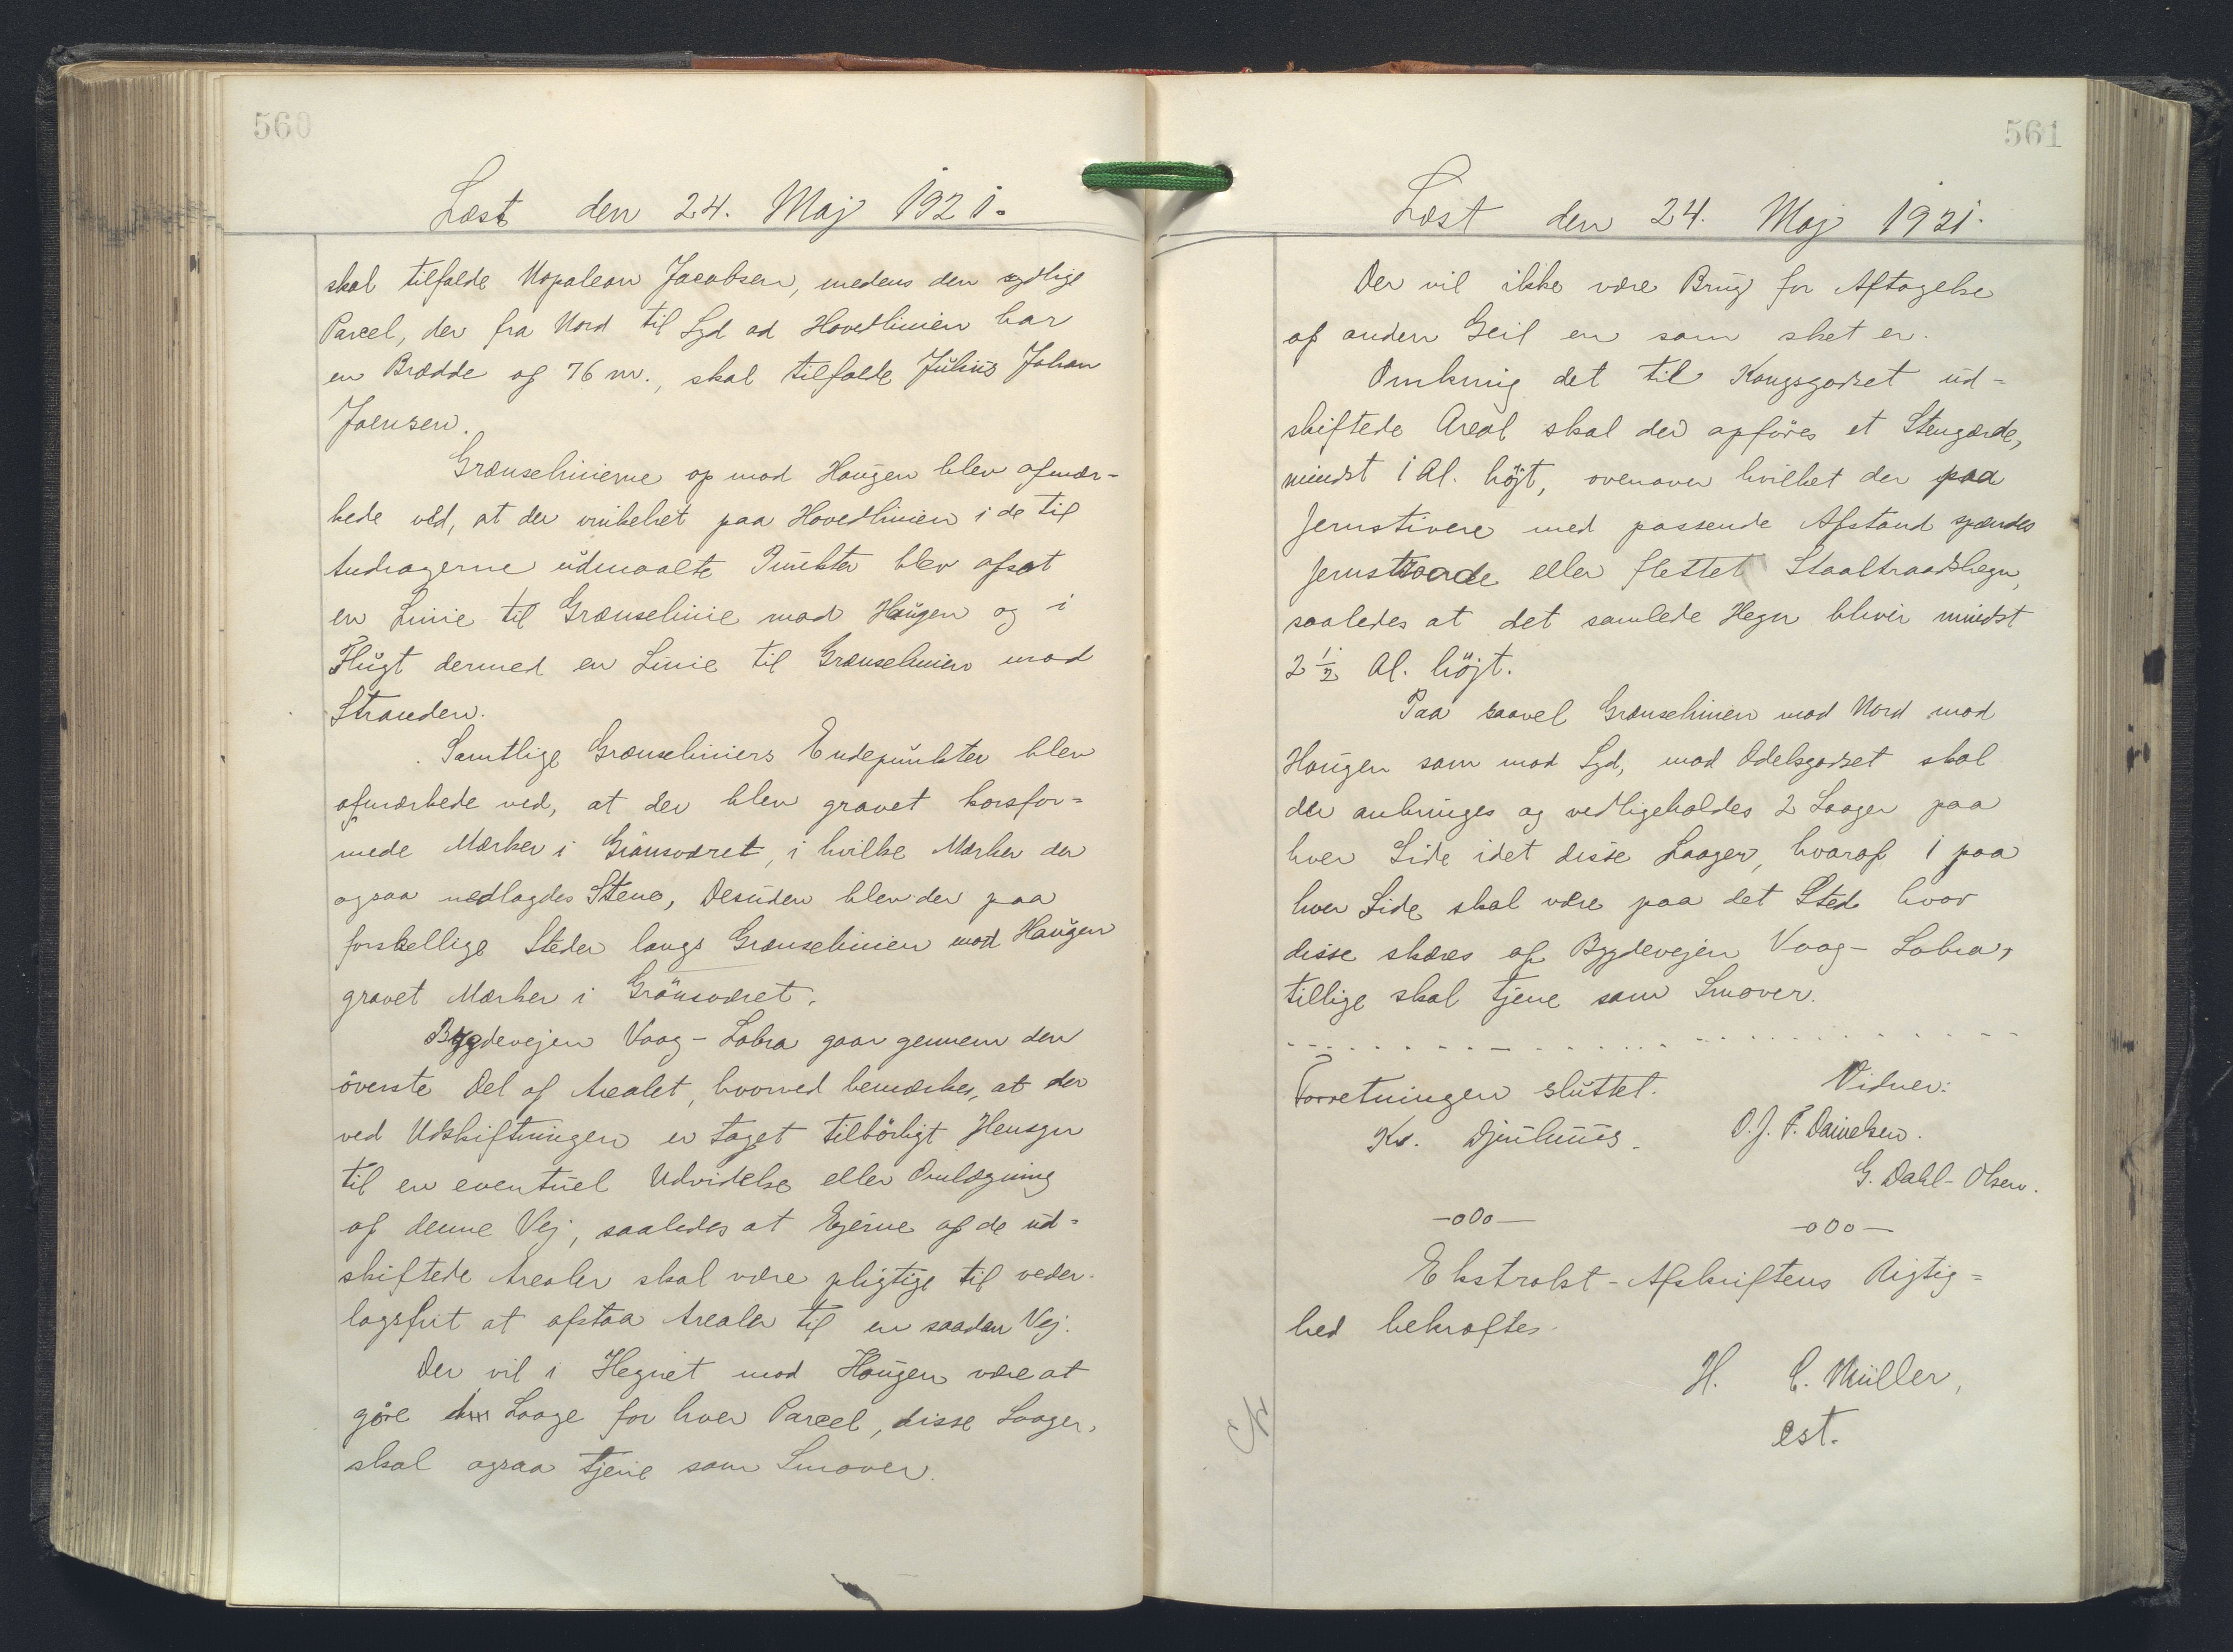 560
Læst den 24. Maj 1921.
skal tilfalde Napoleon Jacobsen, medens den sydlige
Parcel, der fra Nord til Syd ad Hovedlinien har
en Brædde af 76 m., skal tilfalde Julius Johan
Joensen.
Grænselinierne op mod Haugen blev afmær-
kede ved, at der vinkelret paa Hovedlinien i de til
Andragerne udmaalte Punkter blev afsat
en Linie til Grænselinie mod Haugen og i
Flugt dermed en Linie til Grænselinien mod
Stranden.
Samtlige Grænseliniers Endepunkter blev
afmærkede ved, at der blev gravet korsfor=
mede Mærker i Grönsværet, i hvilke Mærker der
ogsaa nedlagdes Stene, Desuden blev der paa
forskellige Steder langs Grænselinien mod Haugen
gravet Mærker i Grönsværet.
Bygdevejen Vaag - Lobra gaar gennem den
överste Del af Arealet, hvorved bemærkes, at der
ved Udskiftningen er taget tilbörligt Hensyn
til en eventuel Udvidelse eller Omlægning
af denne Vej, saaledes at Ejerne af de ud=
skiftede Arealer skal være pligtige til veder-
lagsfrit at afstaa Arealer til en saadan Vej.
Der vil i Hegnet mod Haugen være at
göre Laage for hver Parcel, disse Laager,
skal ogsaa tjene som Smover.
561
Læst den 24. Maj 1921.
Der vil ikke være Brug for Aftagelse
af anden Geil en som sket er.
Omkring det til Kongsgodset ud=
skiftede Areal skal der opföres et Stengærde,
mindst 1 Al. höjt, ovenover hvilket der paa
Jernstivere med passende Afstand spændes
Jernstraade eller flettet Staaltraadshegn,
saaledes at det samlede Hegn bliver mindst
2 1/2 Al. höjt.
Paa saavel Grænselinien mod Nord mod
Haugen som mod Syd, mod Odelsgodset skal
der anbringes og vedligeholdes 2 Laager paa
hver Side idet disse Laager, hvoraf 1 paa
hver Side skal være paa det Sted hvor
disse skæres af Bygdevejen Vaag - Lobra,
tillige skal tjene som Smover.
Forretningen sluttet. Vidner:
Kr. Djurhuus. O. J. F. Danielsen.
G. Dahl-Olsen.
-o0o- -o0o-
Ekstrakt-Afskriftens Rigtig=
hed bekræftes.
H. C. Müller,
est.